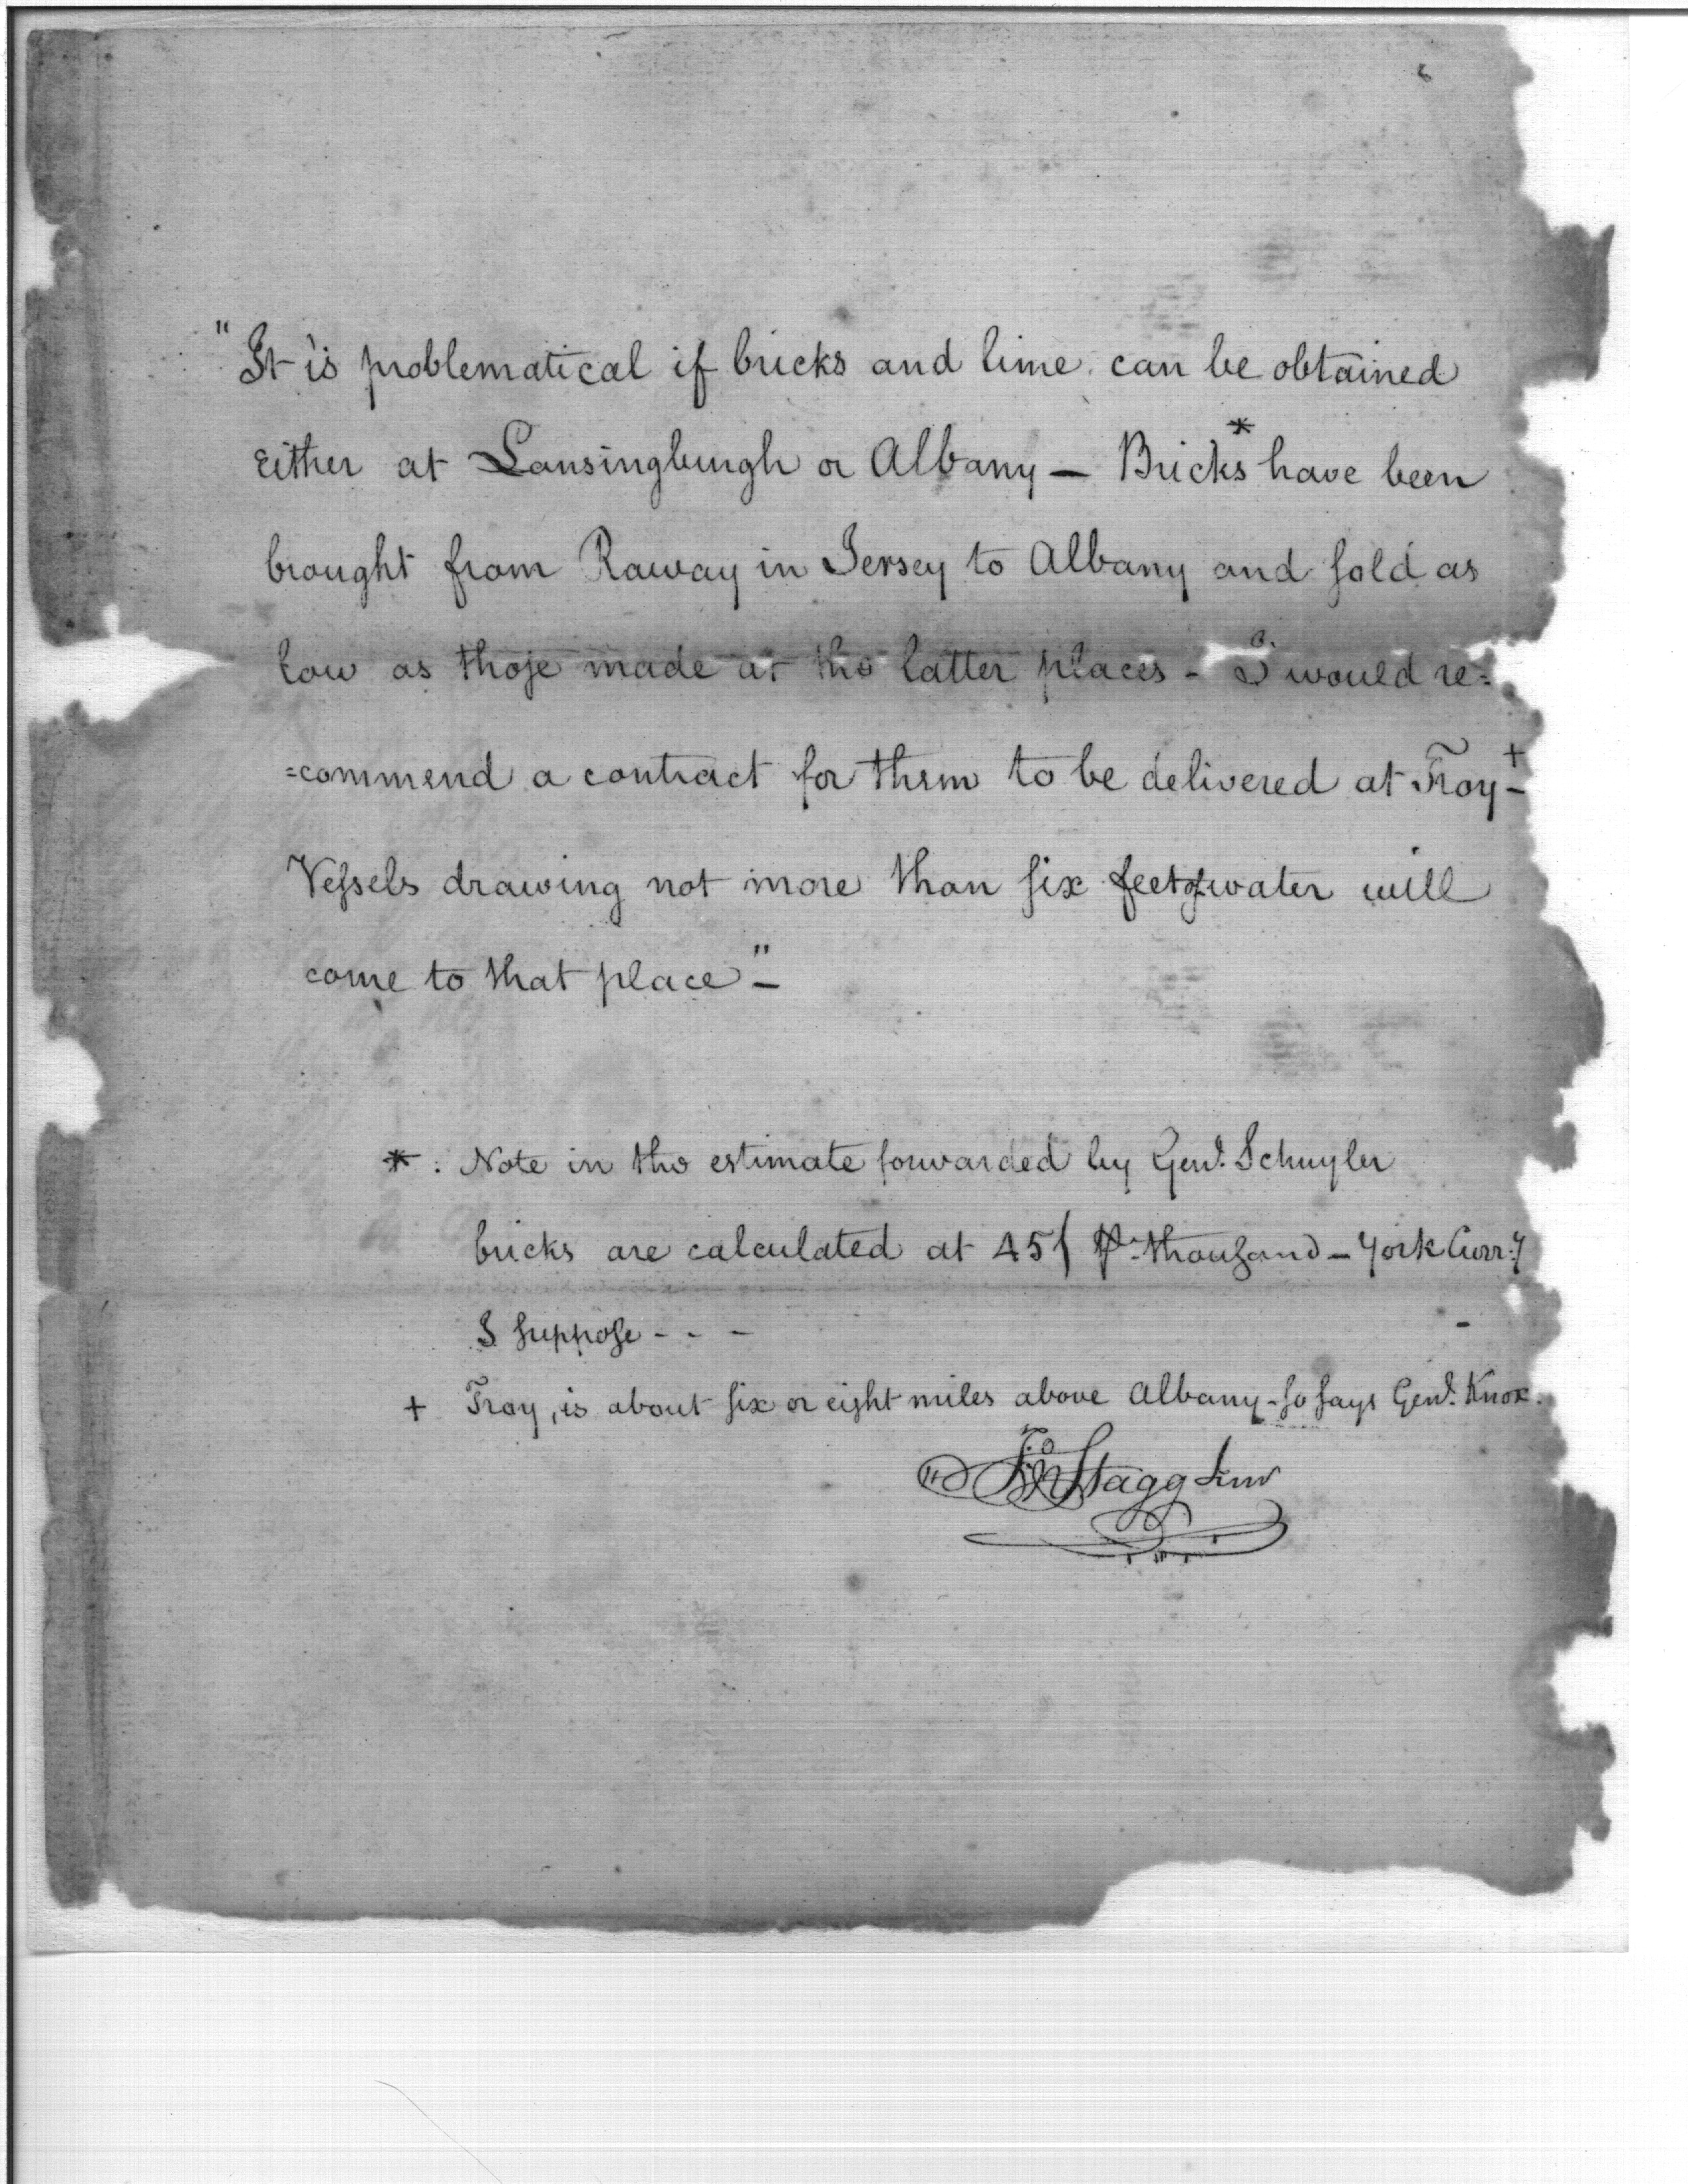 "It is problematical if bricks and lime can be obtained
either at Lansingburgh or Albany — Bricks* have been
brought from Raway in Jersey to Albany and sold as
low as those made at the latter places - I would re=
=commend a contract for them to be delivered at Troy+ -
Vessels drawing not more than six feet of water will
come to that place" -
* : Note in the estimate forwarded by Genl. Schuyler
bricks are calculated at 45/ pr. thousand - York Curr:y
I suppose - - -
+ Troy, is about six or eight miles above Albany - so says Genl. Knox.
Jno Stagg Junr